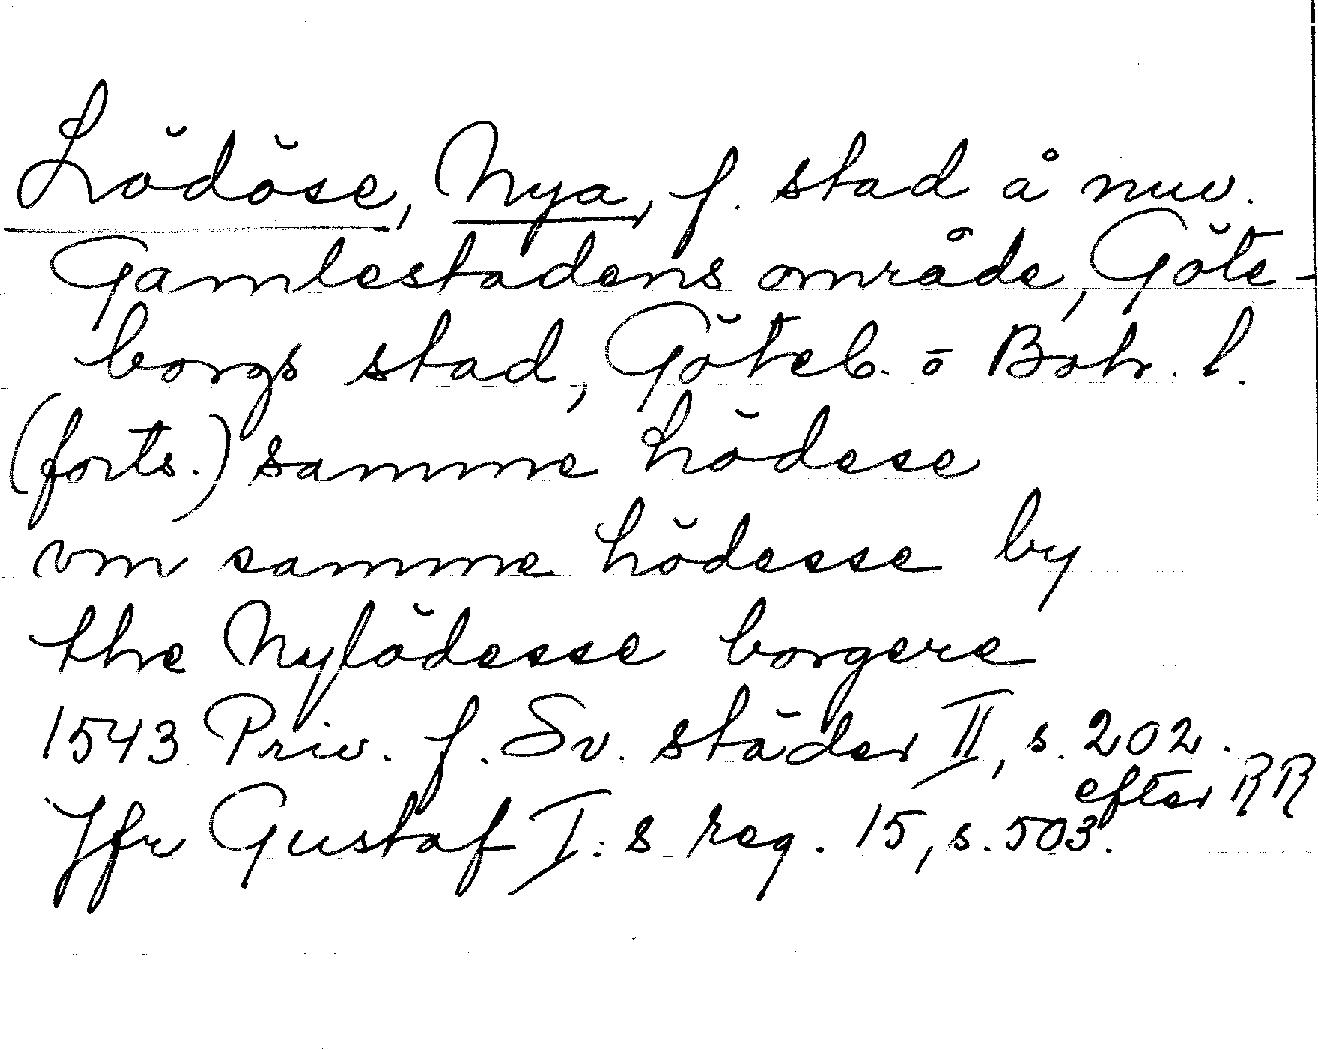 Lödöse, Nya, f. stad å nuv.
Gamlestadens område, Göte-
borgs stad, Göteb. o Boh. l.
(forts.) samme Lödese
vm samme Lödesse by
the Nylödesse borgere
1543 Priv. f. Sv. städer II, s. 202.
efter RR
Jfr Gustaf I:s reg. 15, s. 503.